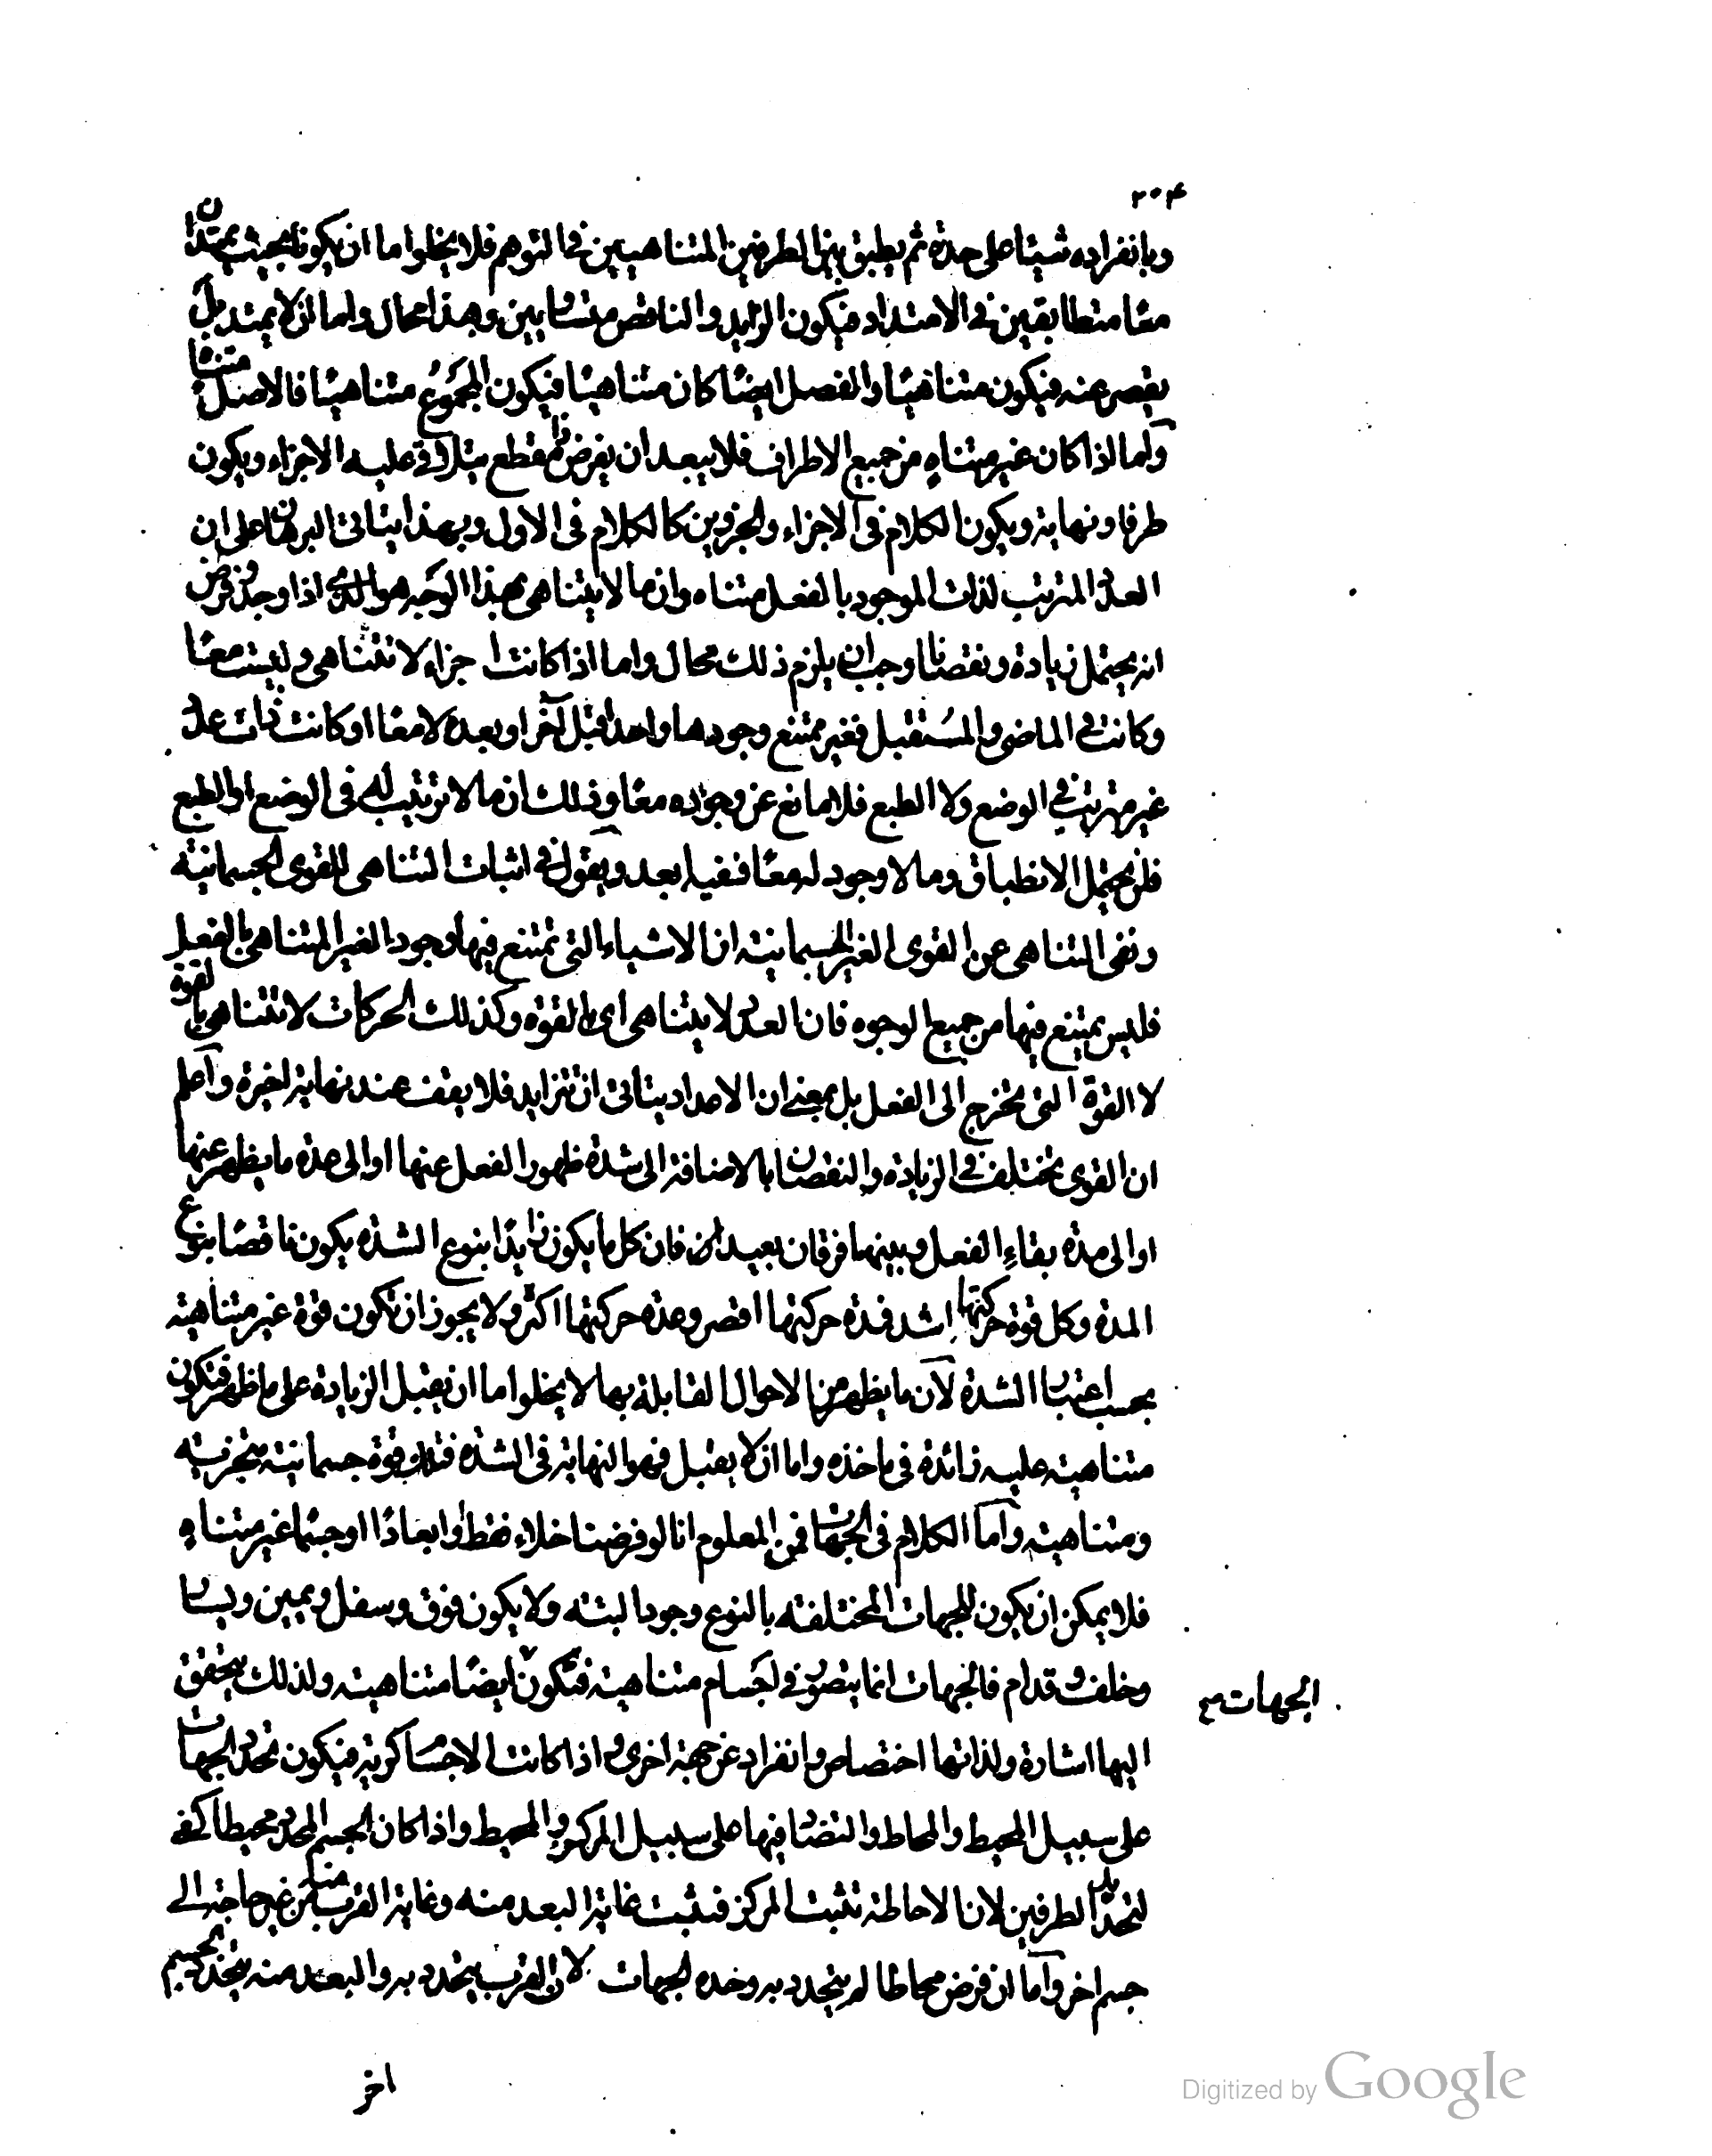 ٢٠۴
وبانفراده شيئا على حدة ثم يطبق بين الطرفين المتناهيين في التوهم فلا يخلو اما ان يكونا بحيث يمتدان
معا متطابقين في الامتداد فيكون الزايد والناقص متساويين وهذا محال واما ان لا يمتد بل
يقصر عنه فيكون متناهيا والفصل ايضا كان متناهيا فيكون المجموع متناهيا فالاصل متناه
واما اذا كان غير متناه من جميع الاطراف فلا يبعد ان يفرض ذا مقطع يتلاقى عليه الاجزاء ويكون
طرفا ونهاية ويكون الكلام في الاجزاء والجزوين كالكلام في الاول وبهذا يتاتى البرهان على ان
العدد المترتب لذات الموجود بالفعل متناه وان ما لا يتناهى بهذا الوجه هو الذي اذا وجد وفرض
انه يحتمل زيادة ونقصانا وجب ان يلزم ذلك محال واما اذا كانت اجزاء لا تتناهى وليست معا
وكانت في الماضي والمستقبل فغير ممتنع وجودها واحدا قبل آخر او بعده لا معا او كانت ذات عدد
غير مترتب في الوضع ولا الطبع فلا مانع عن وجوده معا وذلك ان ما لا ترتيب له في الوضع او الطبع
فلن يحتمل الانطباق وما لا وجود له معا ففيه ابعد ويقول في اثبات التناهي للقوى الجسمانية
ونفى التناهي عن القوى الغير الجسمانية ان الاشياء التي تمتنع فيها وجود الغير المتناهى بالفعل
فليس يمتنع فيها من جميع الوجوه فان العدد لا يتناهى اى بالقوة وكذلك الحركات لا تتناهى بالقوة
لا القوة التي تخرج الى الفعل بل بمعنى ان الاعداد يتاتى ان تتزايد فلا يقف عند نهاية اخيرة واعلم
ان القوى تختلف في الزيادة والنقصان بالاضافة الى شدة ظهور الفعل عنها او الى عدة ما يظهر عنها
او الى مدة بقاء الفعل وبينهما فرقان بعيد فان كل ما يكون زايدا بنوع الشدة يكون ناقصا بنوع
المدة وكل قوة حركتها اشد فمدة حركتها اقصر وعدة حركتها اكثر ولا يجوز ان تكون قوة غير متناهية
بحسب اعتبار الشدة لان ما يظهر من الاحوال القابلة بها لا يخلو اما ان يقبل الزيادة على ما ظهر فتكون
متناهية عليه زائدة في ماخذه واما ان لا يقبل فهو النهاية في الشدة فتلك قوة جسمانية متجزية
ومتناهية واما الكلام في الجهات فمن المعلوم انا لو فرضنا خلاء فقط او ابعادا او جسما غير متناه
فلا يمكن ان يكون للجهات المختلفة بالنوع وجود البتة ولا يكون فوق وسفل ويمين ويسار
وخلف وقدام فالجهات انما يتصور في اجسام متناهية فتكون ايضا متناهية ولذلك يتحقق
الجهات صح
اليها اشارة ولذاتها اختصاص وانفراد عن جهة اخرى واذا كانت الاجسام كرية فيكون تحدد الجهات
على سبيل المحيط والمحاط والتضاد فيها على سبيل المركز والمحيط واذا كان الجسم المحدد محيطا كفى
لتحديد الطرفين لان الاحاطة تثبت المركز فثبت غاية البعد منه وغاية القرب منه من غير حاجة الى
جسم اخر واما ان فرض محاطا لم يتحدد به وحده الجهات لان القرب يتحدد به والبعد منه يتحدد بجسم
اخر
Digitized by Google